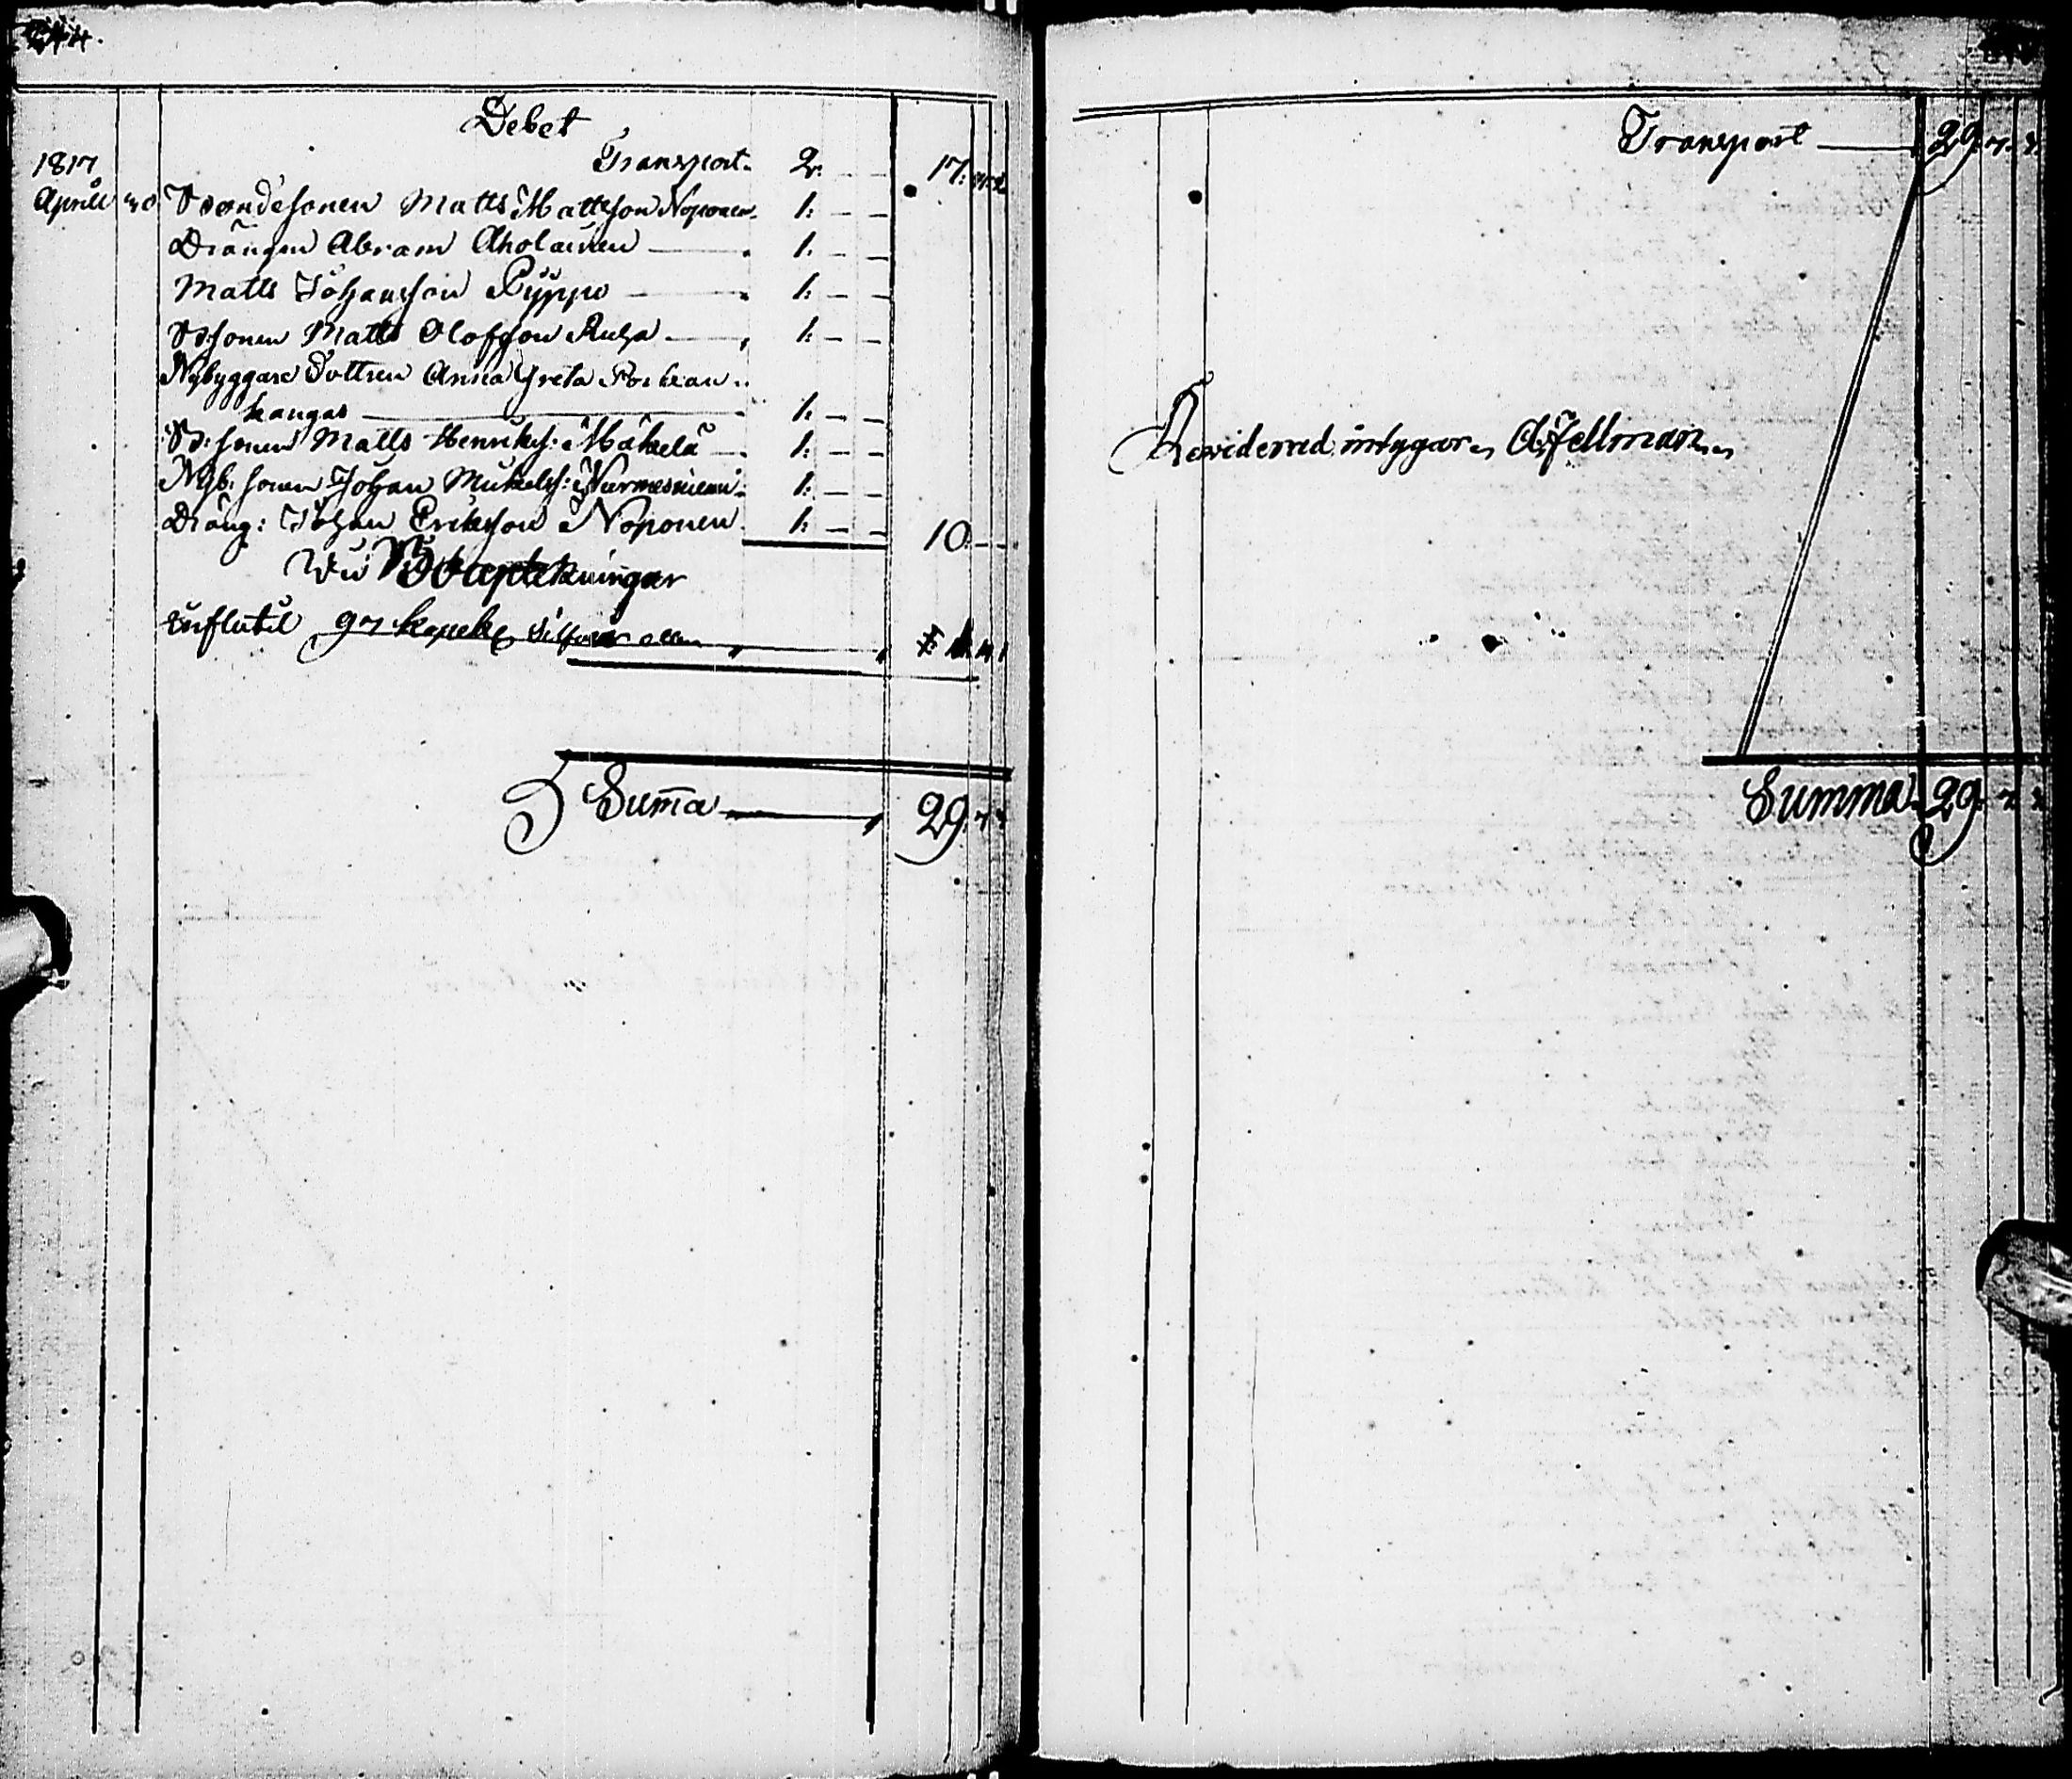 Debet
1817 Transport 2: 17:
Aprill 30 Bondesonen Matts Mattsson Noponen 1: — —
Drängen Abram Aholainen 1: — —
Matts Johansson Pyppo 1: — —
B:sonen Matts Olofsson Ruha 1: — —
Nybyggare Dottren Anna Greta
kangas 1: — —
B:sonen Matts Henriks: Mäkelä 1: — —
Nyb: sonen Johan Mickels: Nurmesniemi 1: — —
Dräng: Johan Eriksson Noponen 1: — — 10 — —
Wid
influtit 97 kopek silfver eller
Summa 29
Transport 29
Reviderad intygar A Fellman
Summa 29